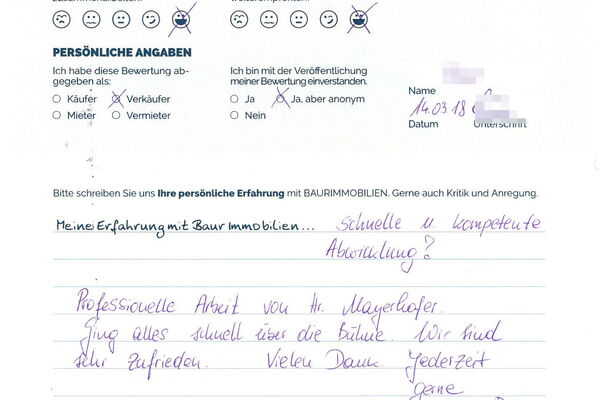 PERSÖNLICHE ANGABEN
Ich habe diese Bewertung ab-
gegeben als:
Käufer Verkäufer
Mieter Vermieter
Ich bin mit der Veröffentlichung
meiner Bewertung einverstanden.
Ja Ja, aber anonym
Nein
Name
14.03.18
Datum Unterschrift
Bitte schreiben Sie uns Ihre persönliche Erfahrung mit BAURIMMOBILIEN. Gerne auch Kritik und Anregung.
Meine Erfahrung mit Baur Immobilien... schnelle u. kompetente
Abwicklung?
Professionelle Arbeit von Hr. Mayerhofer.
Ging alles schnell über die Bühne. Wir sind
sehr zufrieden. Vielen Dank. Jederzeit
gerne